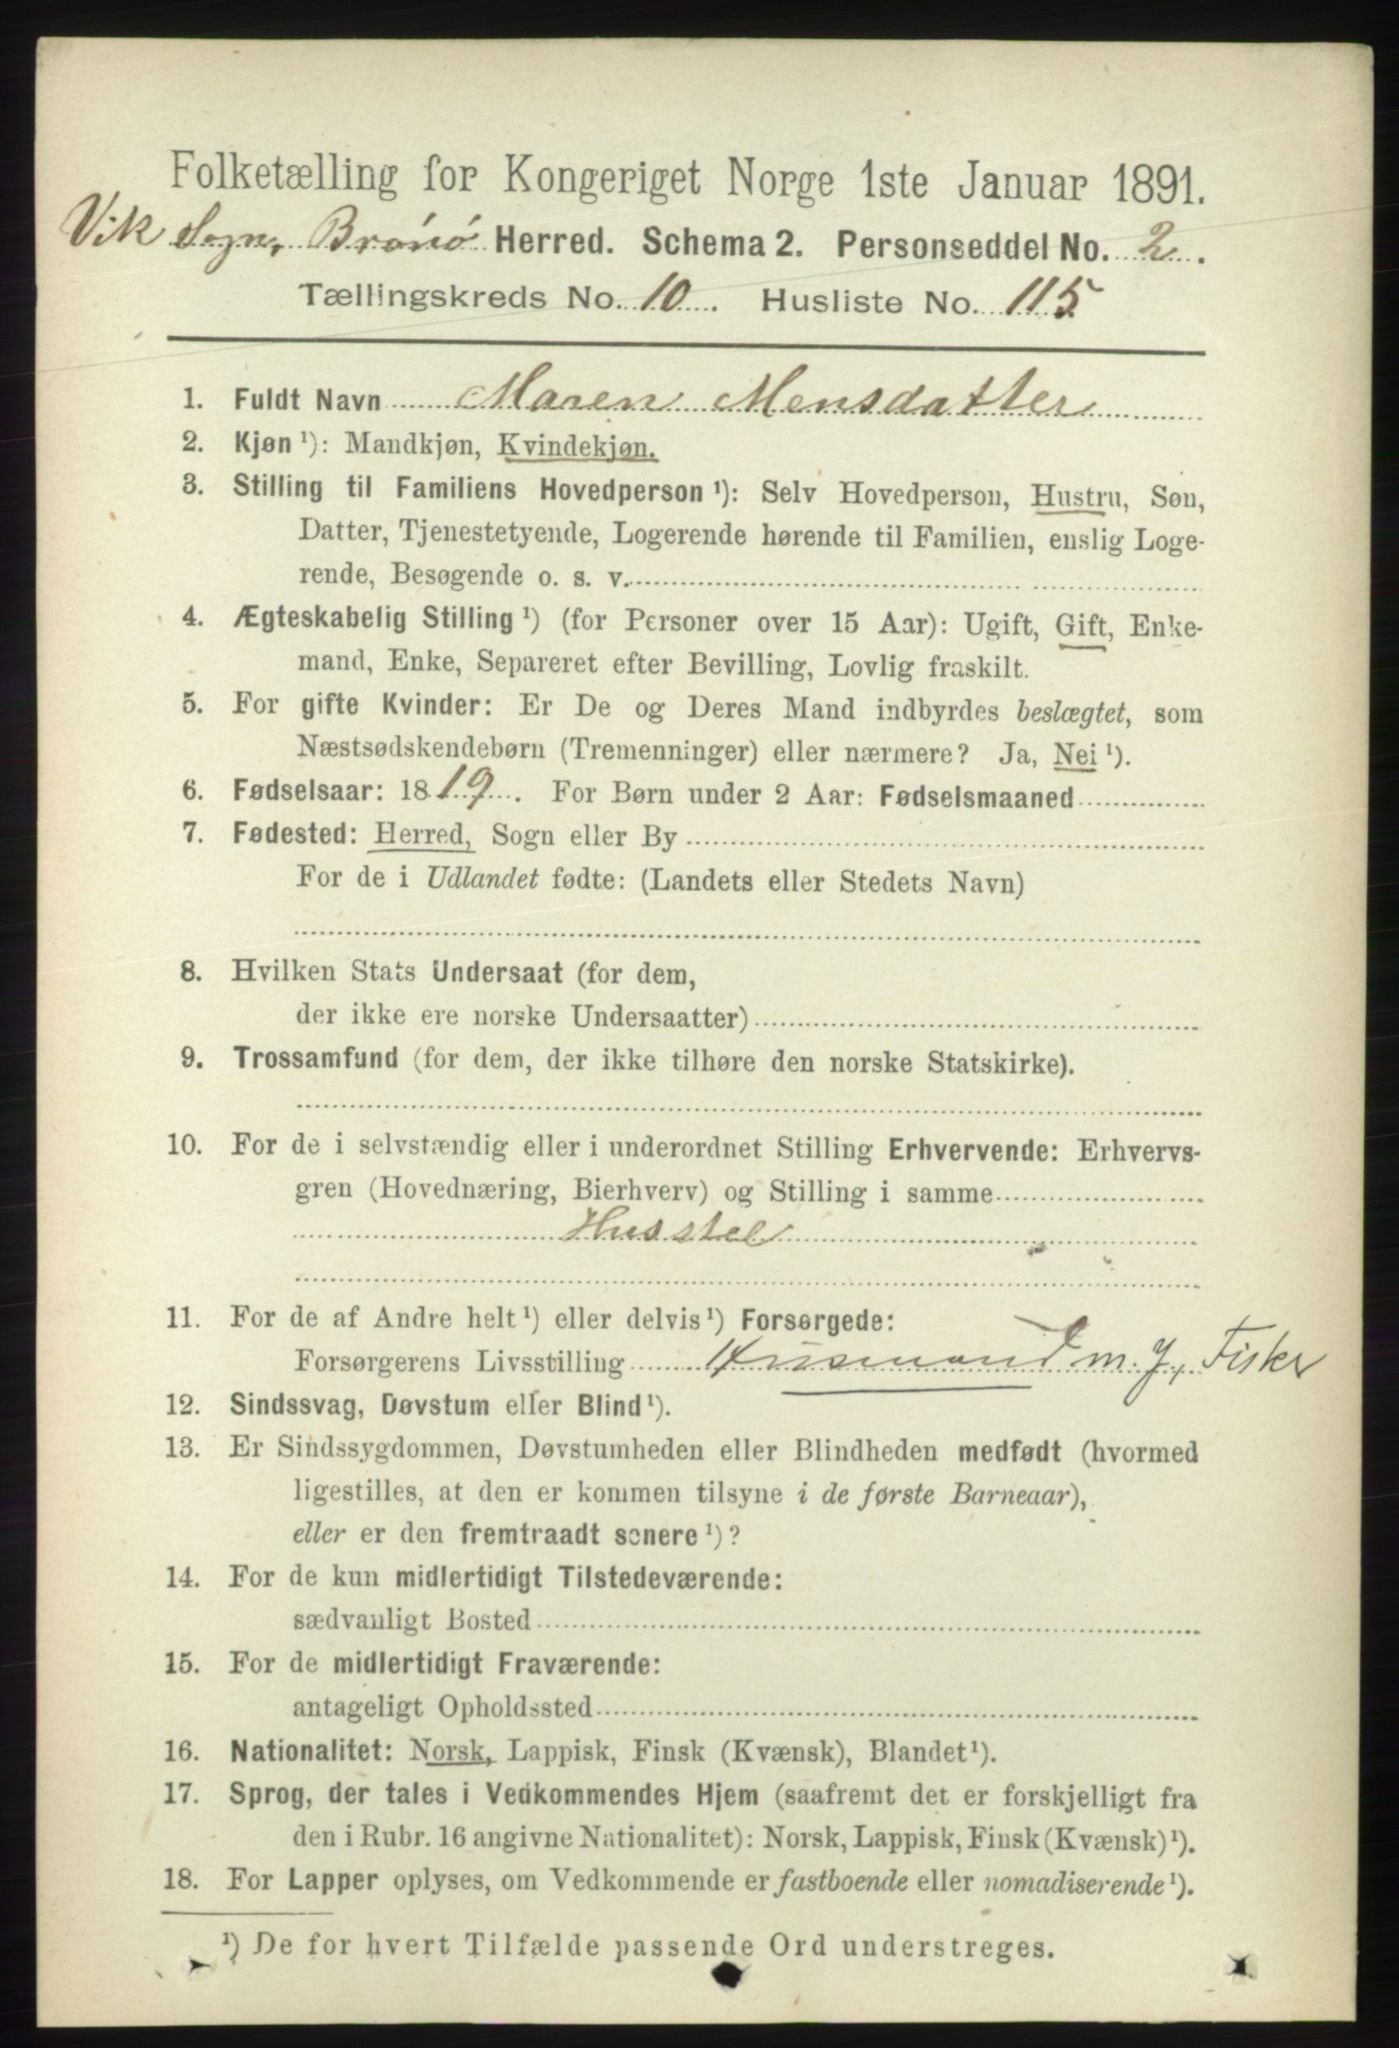 Folketælling for Kongeriget Norge 1ste Januar 1891.
Vik Sogn, Brønø Herred. Schema 2. Personseddel No. 2.
Tællingskreds No. 10. Husliste No. 115
1. Fuldt Navn Maren Mensdatter
2. Kjøn ¹): Mandkjøn, Kvindekjøn.
3. Stilling til Familiens Hovedperson ¹): Selv Hovedperson, Hustru, Søn,
Datter, Tjenestetyende, Logerende hørende til Familien, enslig Loge-
rende, Besøgende o. s. v.
4. Ægteskabelig Stilling ¹) (for Personer over 15 Aar): Ugift, Gift, Enke-
mand, Enke, Separeret efter Bevilling, Lovlig fraskilt.
5. For gifte Kvinder: Er De og Deres Mand indbyrdes beslægtet, som
Næstsødskendebørn (Tremenninger) eller nærmere? Ja, Nei ¹).
6. Fødselsaar: 1819. For Børn under 2 Aar: Fødselsmaaned
7. Fødested: Herred, Sogn eller By
For de i Udlandet fødte: (Landets eller Stedets Navn)
8. Hvilken Stats Undersaat (for dem,
der ikke ere norske Undersaatter)
9. Trossamfund (for dem, der ikke tilhøre den norske Statskirke).
10. For de i selvstændig eller i underordnet Stilling Erhvervende: Erhvervs-
gren (Hovednæring, Bierhverv) og Stilling i samme
Husstel
11. For de af Andre helt ¹) eller delvis ¹) Forsørgede:
Forsørgerens Livsstilling Husmand m. J., Fisker
12. Sindssvag, Døvstum eller Blind ¹).
13. Er Sindssygdommen, Døvstumheden eller Blindheden medfødt (hvormed
ligestilles, at den er kommen tilsyne i de første Barneaar),
eller er den fremtraadt senere ¹)?
14. For de kun midlertidigt Tilstedeværende:
sædvanligt Bosted
15. For de midlertidigt Fraværende:
antageligt Opholdssted
16. Nationalitet: Norsk, Lappisk, Finsk (Kvænsk), Blandet ¹).
17. Sprog, der tales i Vedkommendes Hjem (saafremt det er forskjelligt fra
den i Rubr. 16 angivne Nationalitet): Norsk, Lappisk, Finsk (Kvænsk) ¹).
18. For Lapper oplyses, om Vedkommende er fastboende eller nomadiserende ¹).
¹) De for hvert Tilfælde passende Ord understreges.